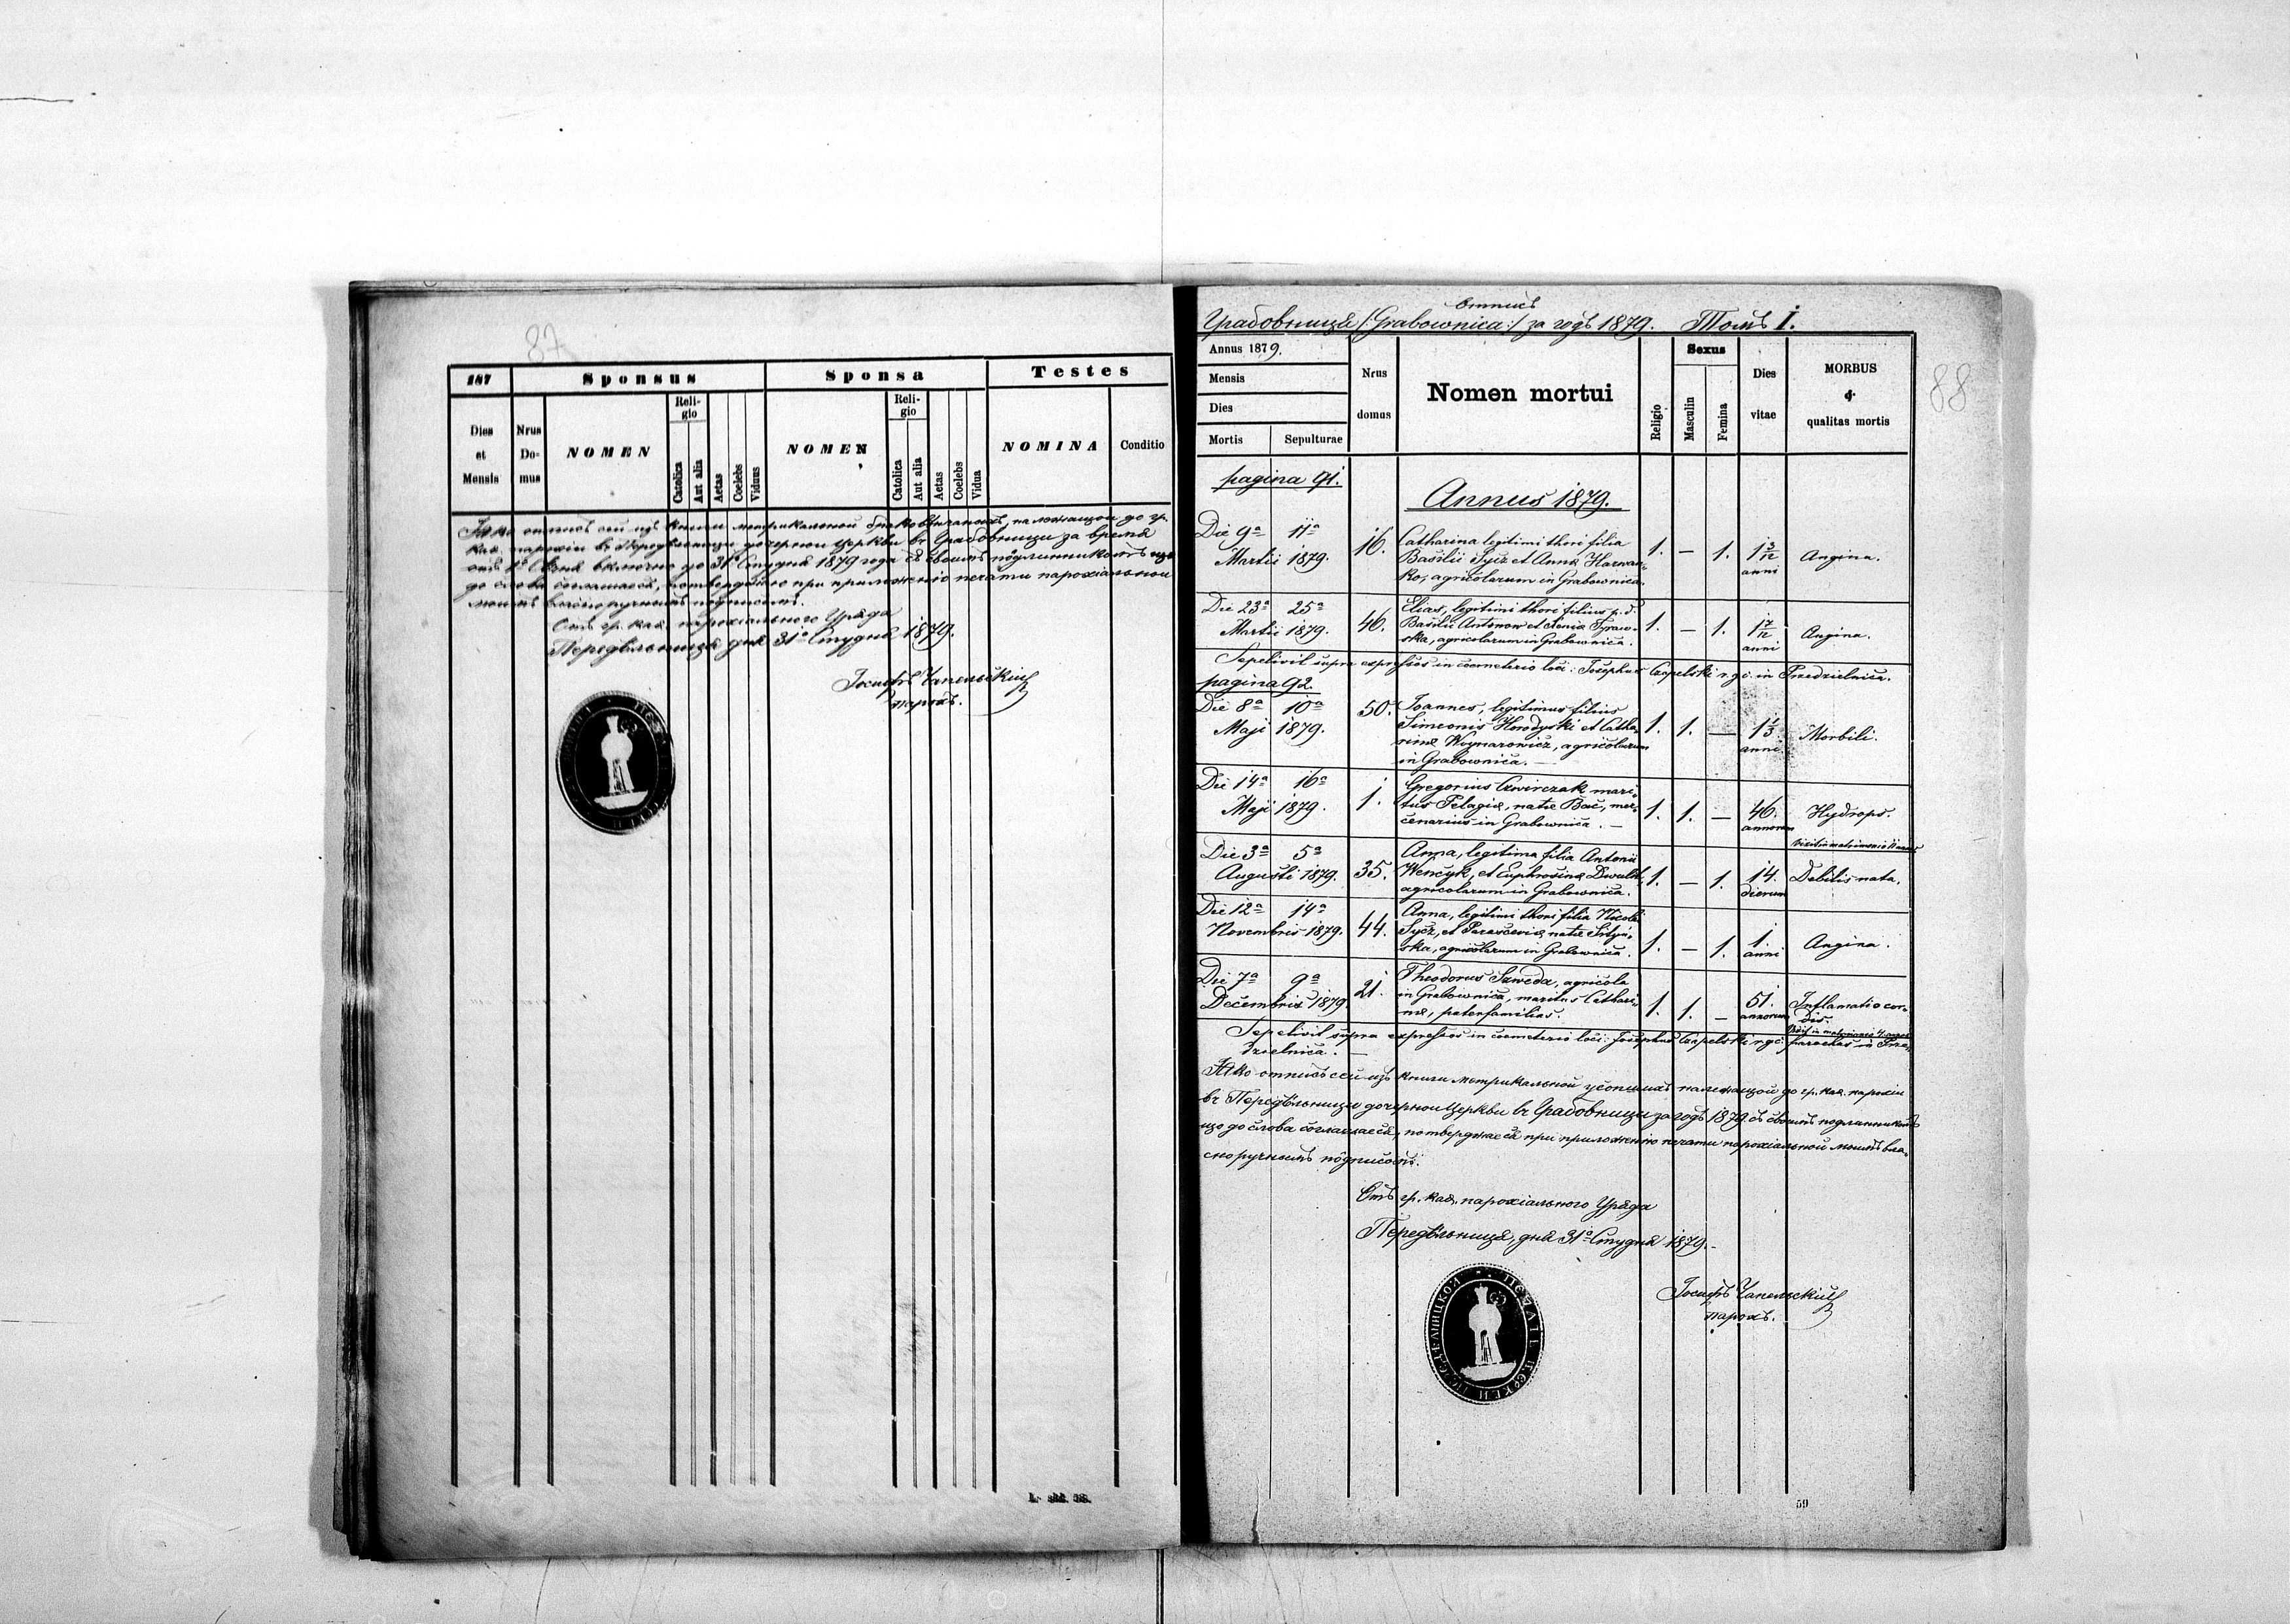 87
187 Sponsus Sponsa Testes
Dies et Mensis
Nrus Domus
NOMEN
Religio
Catolica
Aut alia
Aetas
Coelebs
Viduus
NOMEN
Religio
Catolica
Aut alia
Aetas
Coelebs
Vidua
NOMINA
Conditio
Яко отписъ сей изъ книги метрикальной браковѣнчаныхъ, належащои до гр.
кат. парохіи въ Передѣльници дочернои церкви въ Градовници за время
отъ 1º включно до 31º Студня 1879 года съ своимъ подлинникомъ що
до слова соглашаеся, потверджаю при приложенію печати парохіальнои
моимъ власноручнымъ подписомъ.
Отъ гр. кат. парохіального Уряда
Передѣльница дня 31º Студня 1879.
Іосифъ Чапельскій
парохъ.
L. skł. 58.
Отписъ
Градовница (:Grabownica:) за годъ 1879. Томъ I.
88
Annus 1879.
Mensis
Dies
Mortis Sepulturae
Nrus domus
Nomen mortui
Religio
Sexus
Masculin
Femina
Dies vitae
MORBUS
&
qualitas mortis
pagina 91.
Annus 1879.
Die 9ª 11ª
Martii 1879.
16.
Catharina legitimi thori filia
Basilii Sycz et Anna
agricolarum in Grabownica.
1. — 1. 1 3/12 anni Angina.
Die 23ª 25ª
Martii 1879.
46.
Elias, legitimi thori filius p. d.
Basilii Antonow et Xenia Tyraw-
ska, agricolarum in Grabownica.
1. — 1. 1 7/12 anni Angina.
Sepelivit supra expressos in coemeterio loci: Josephus Czapelski r. g. c. in Przedzielnica.
pagina 92.
Die 8ª 10ª
Maji 1879.
50.
Joannes, legitimus filius
Simeonis Horodyski et Catha-
rinæ Woynarowicz, agricolarum
in Grabownica. —
1. 1. — 1 1/3 anni Morbili.
Die 14ª 16ª
Maji 1879.
1.
Gregorius Cwirczak mari-
tus Pelagiæ, natæ Bac, mer-
cenarius in Grabownica. —
1. 1. — 46. annorum Hydrops.
vixit in matrimonio
Die 3ª 5ª
Augusti 1879.
35.
Anna, legitima filia Antonii
Wenčyk, et Euphrosinæ
agricolarum in Grabownica.
1. — 1. 14. dierum Debilis nata.
Die 12ª 14ª
Novembris 1879.
44.
Anna, legitimi thori filia Nicolai
Sycz, et Parasceviæ natæ
ska, agricolarum in Grabownica.
1. — 1. 1. anni Angina.
Die 7ª 9ª
Decembris 1879.
21.
Theodorus Szweda, agricola
in Grabownica, maritus Cathari-
næ, paterfamilias.
1. 1. — 51. annorum Inflamatio cor-
dis.
Vixit in matrimonio
Sepelivit supra expressos in coemeterio loci: Josephus Czapelski r. g. c. parochus in Prze-
dzielnica. —
Яко отписъ сей изъ книги метрикальной усопшихъ належащой до гр. кат. парохіи
въ Передѣльници дочернои Церкви въ Градовници за годъ 1879. съ своимъ подлинникомъ
що до слова соглашаеся, потверджаеся при приложенію печати парохіальной моимъ вла-
сноручнымъ подписомъ.
Отъ гр. кат. парохіального Уряда
Передѣльница, дня 31º Студня 1879.
Іосифъ Чапельскій
парохъ.
59